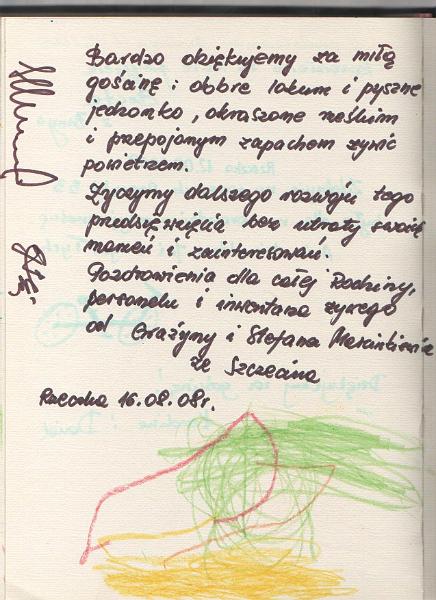 Bardzo dziękujemy za miłą
gościnę i dobre lokum i pyszne
jedzonko, okraszone rześkim
i przepojonym zapachem żywic
powietrzem.
Życzymy dalszego rozwoju tego
przedsięwzięcia bez utraty swoich
marzeń i zainteresowań
Pozdrowienia dla całej Rodziny,
personelu i inwentarza żywego
od Grażyny i Stefana
ze Szczecina
Rzeczka 16.08.08r.